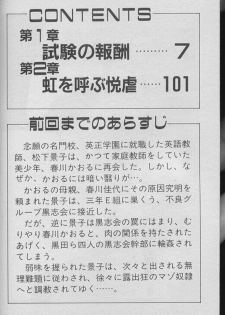 CONTENTS
第1章
試験の報酬………7
第2章
虹を呼ぶ悦虐……101
前回までのあらすじ
念願の名門校、英正学園に就職した英語教
師、松下景子は、かつて家庭教師をしていた
美少年、春川かおるに再会した。しかし、な
ぜか、かおるには暗い翳りが…。
かおるの母親、春川佳代にその原因究明を
頼まれた景子は、三年E組に巣くう、不良グ
ループ黒志会に接近した。
だが、逆に景子は黒志会の罠にはまり、む
りやり春川かおると、肉の関係を持たされた
あげく、黒田ら四人の黒志会幹部に輪姦され
てしまう。
弱味を握られた景子は、次々と出される無
理難題に従わされ、露出狂のマゾ奴隷
へと調教されてゆく……。